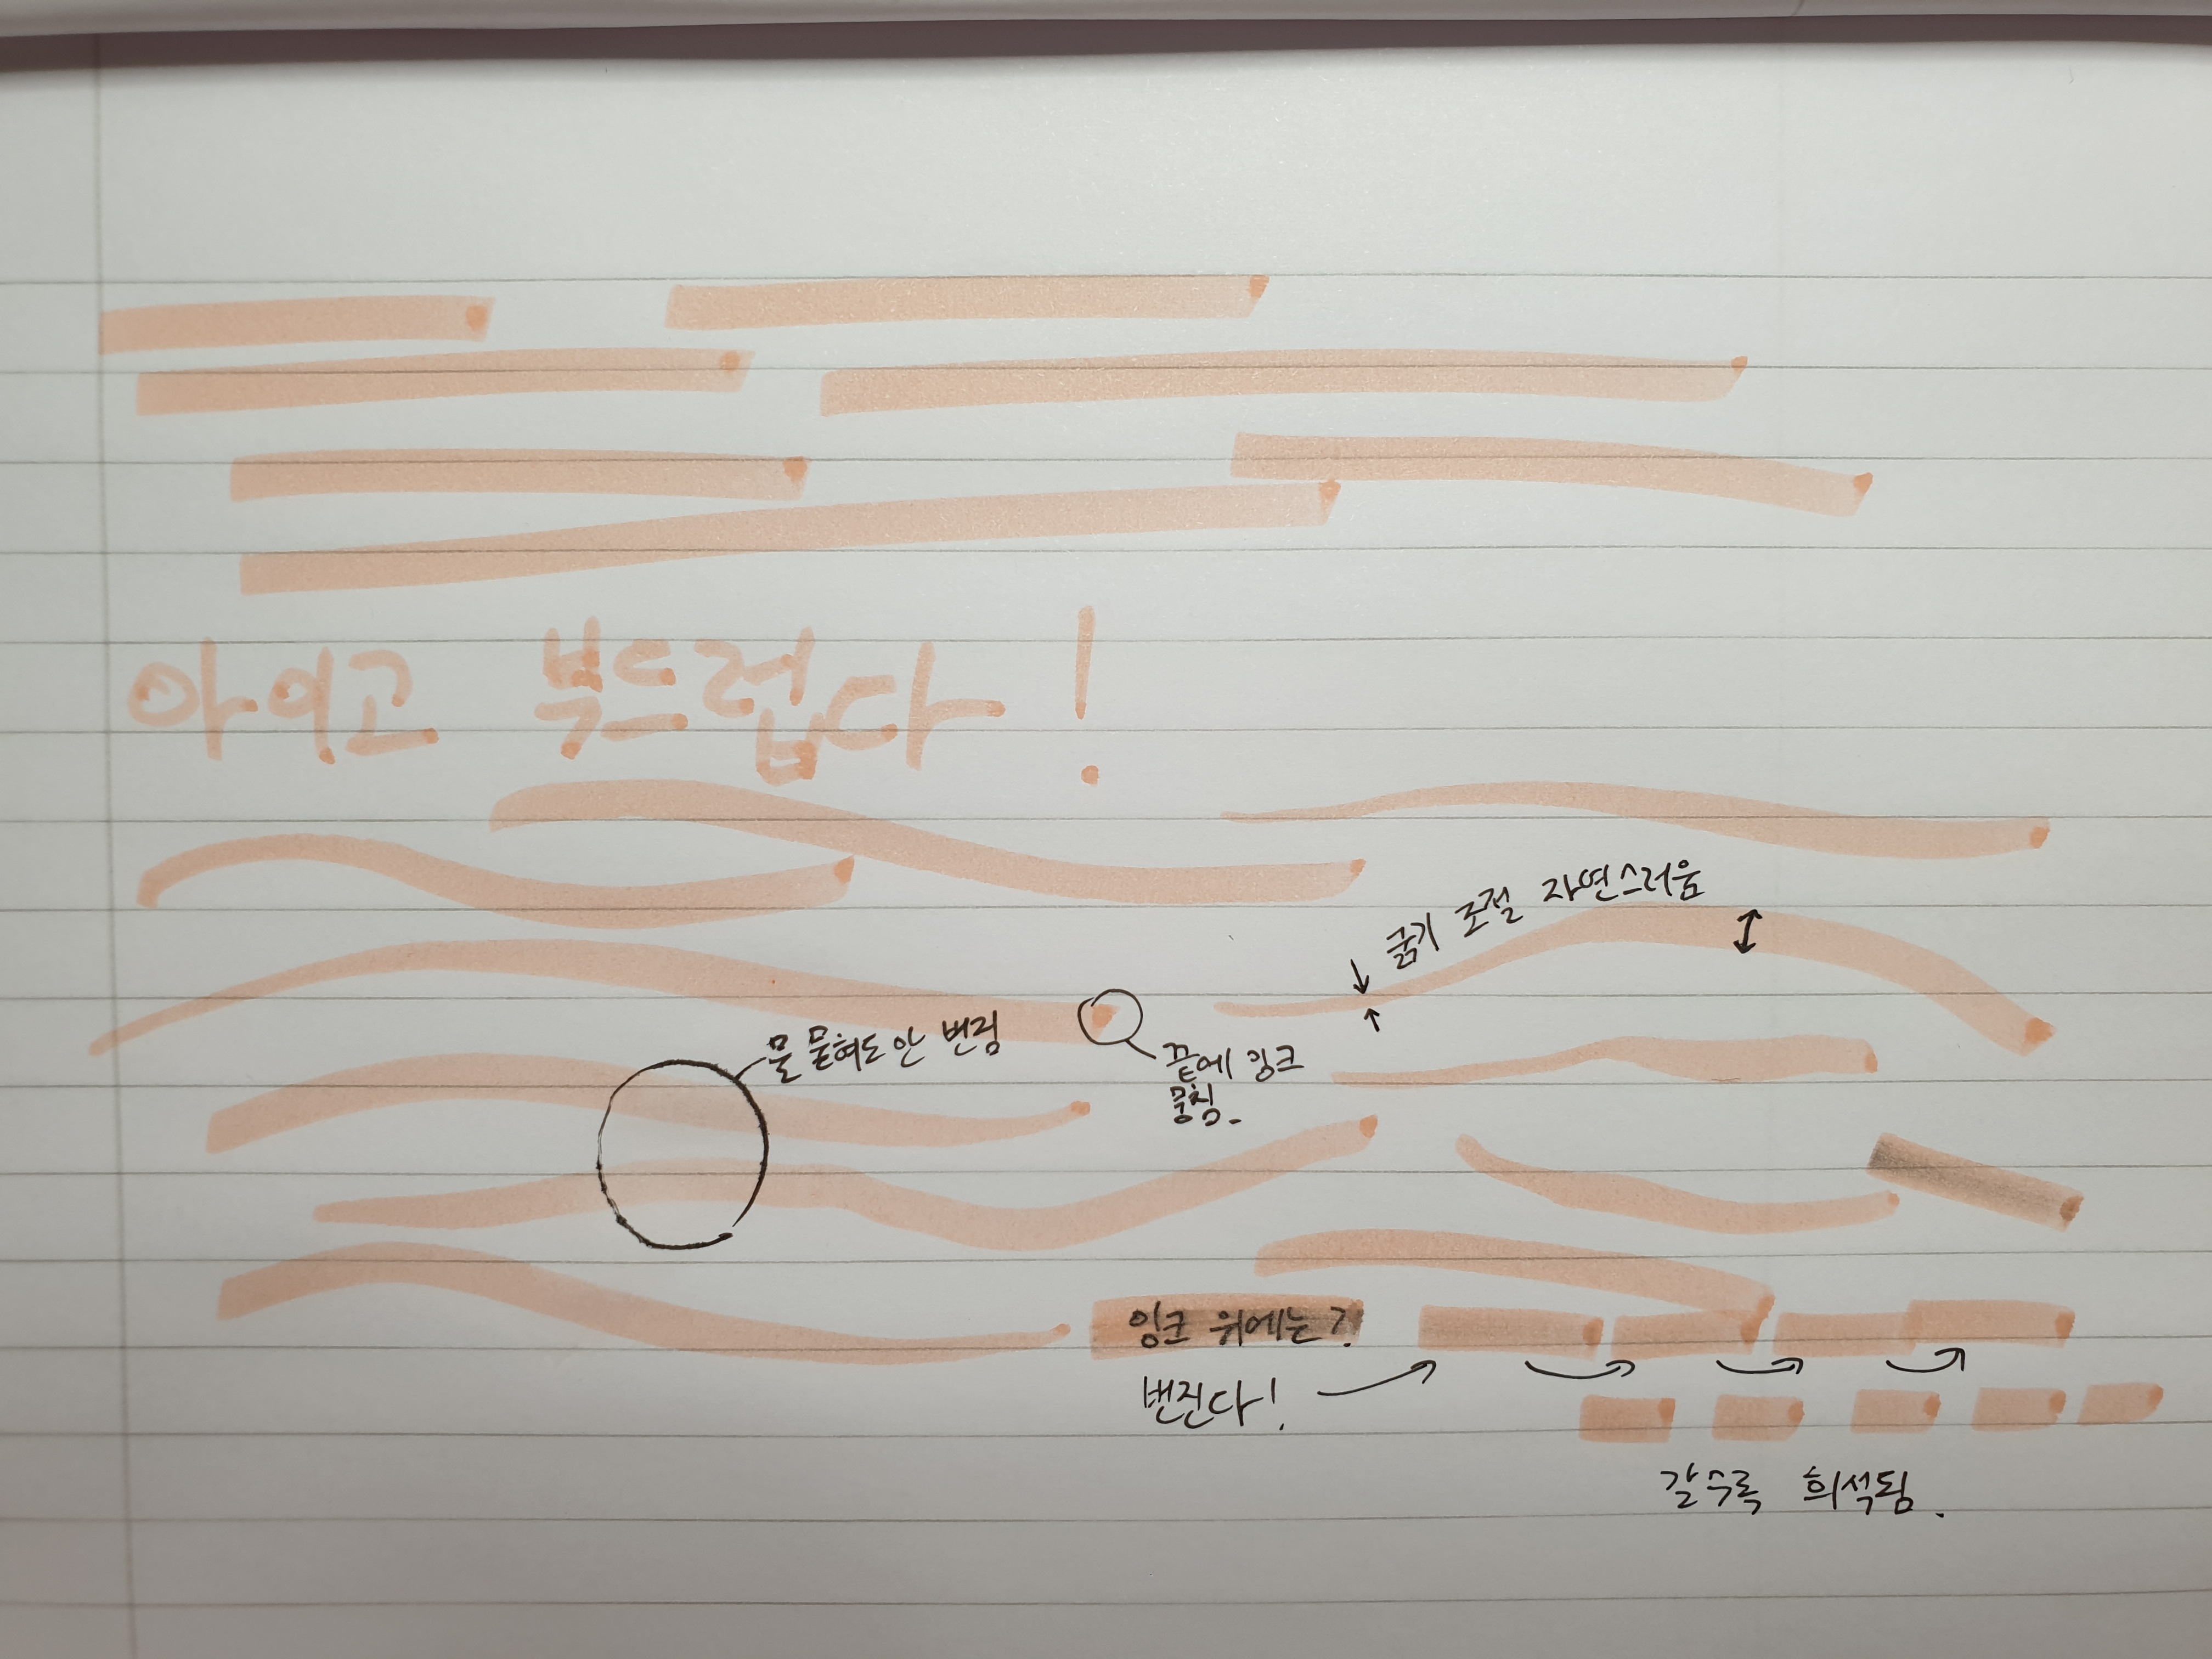 아이고 부드럽다!
굵기 조절 자연스러움
물 묻혀도 안 번짐
끝에 잉크
뭉침.
잉크 위에는?
번진다!
갈수록 희석됨.